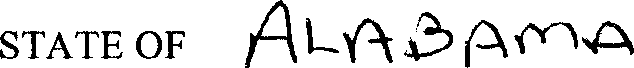 STATE OF ALABAMA